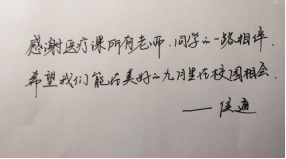 感谢医疗课所有老师、同学的一路相伴.
希望我们能在美好的九月里在校园相会.
——侯通